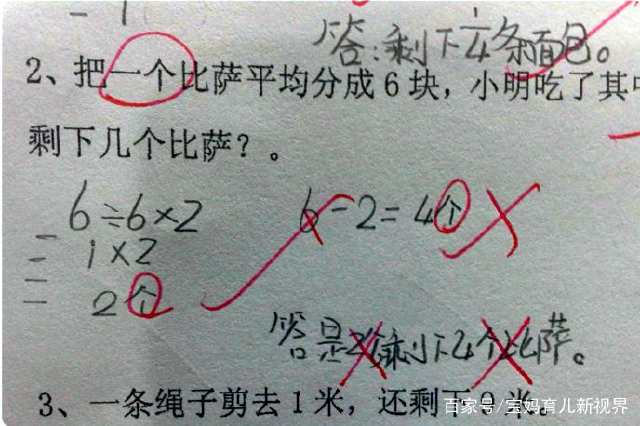 答:剩下1/4条面包。
2、把一个比萨平均分成6块,小明吃了其中
剩下几个比萨?。
6÷6×2
6-2=4个
=1×2
=2个
答是2个剩下4个比萨。
3、一条绳子剪去1米,还剩下9米。
百家号/宝妈育儿新视界